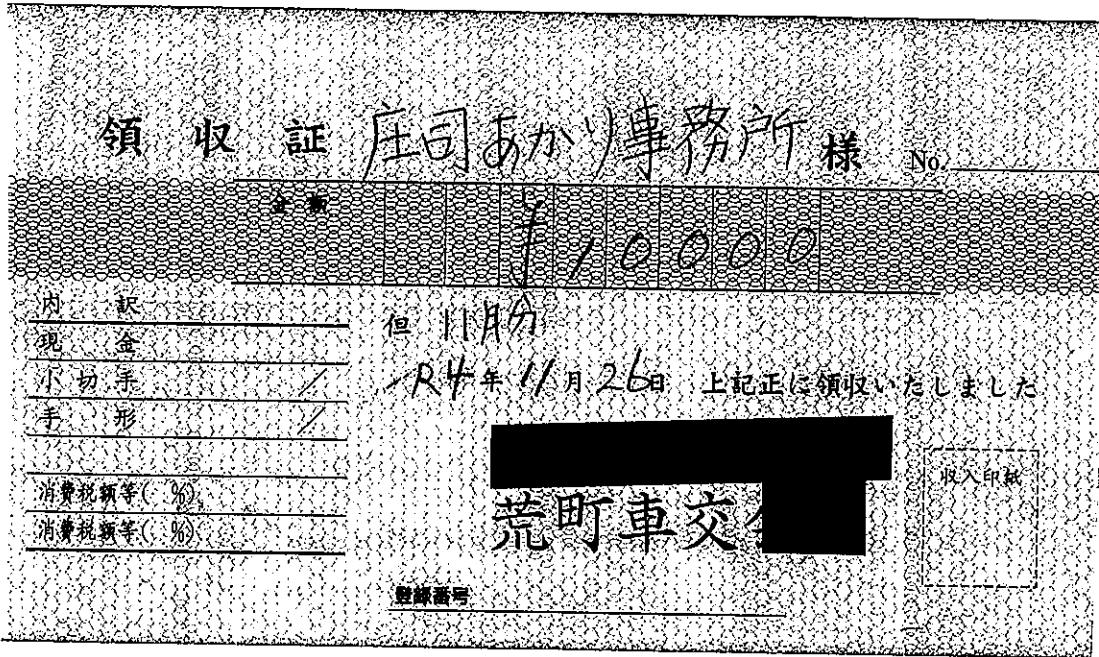 領収証 庄司あかり事務所 様 No.
金額 ¥10000
内訳
現金
小切手 /
手形 /
消費税額等( %)
消費税額等( %)
但 11月分
R4年11月26日 上記正に領収いたしました
荒町車交
収入印紙
登録番号